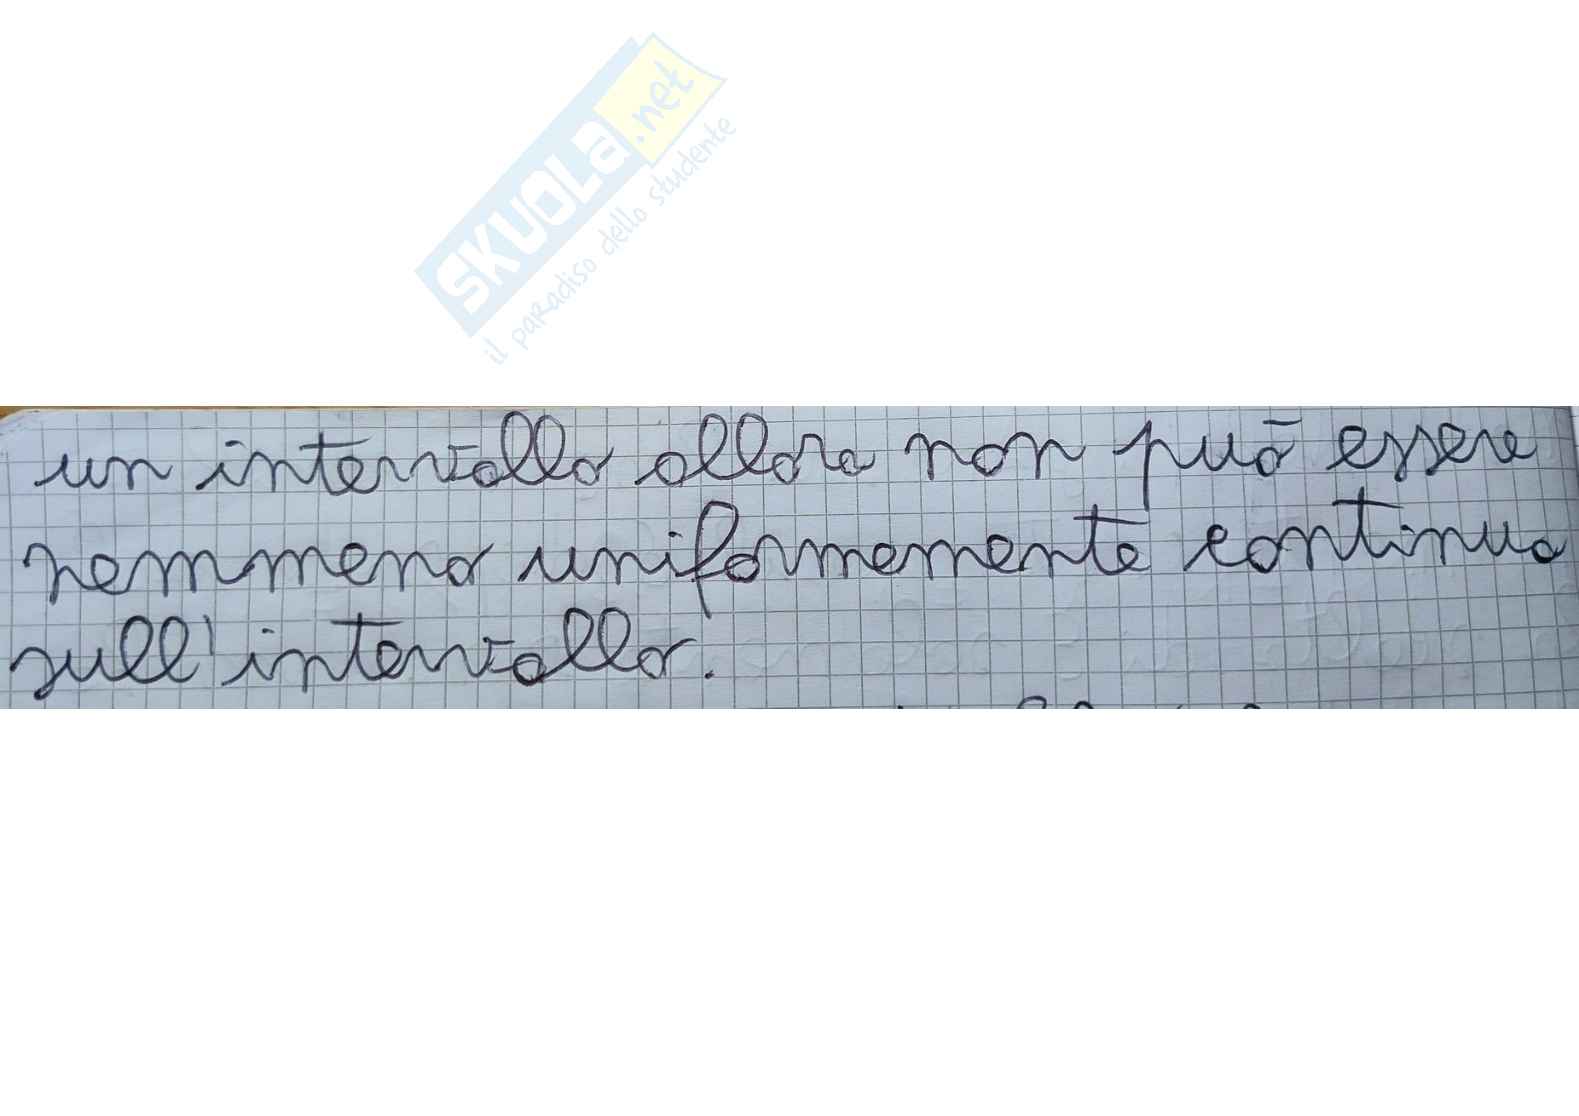 SKUOLa.net
il paradiso dello studente
un intervallo allora non può essere
nemmeno uniformemente continua
sull'intervallo.